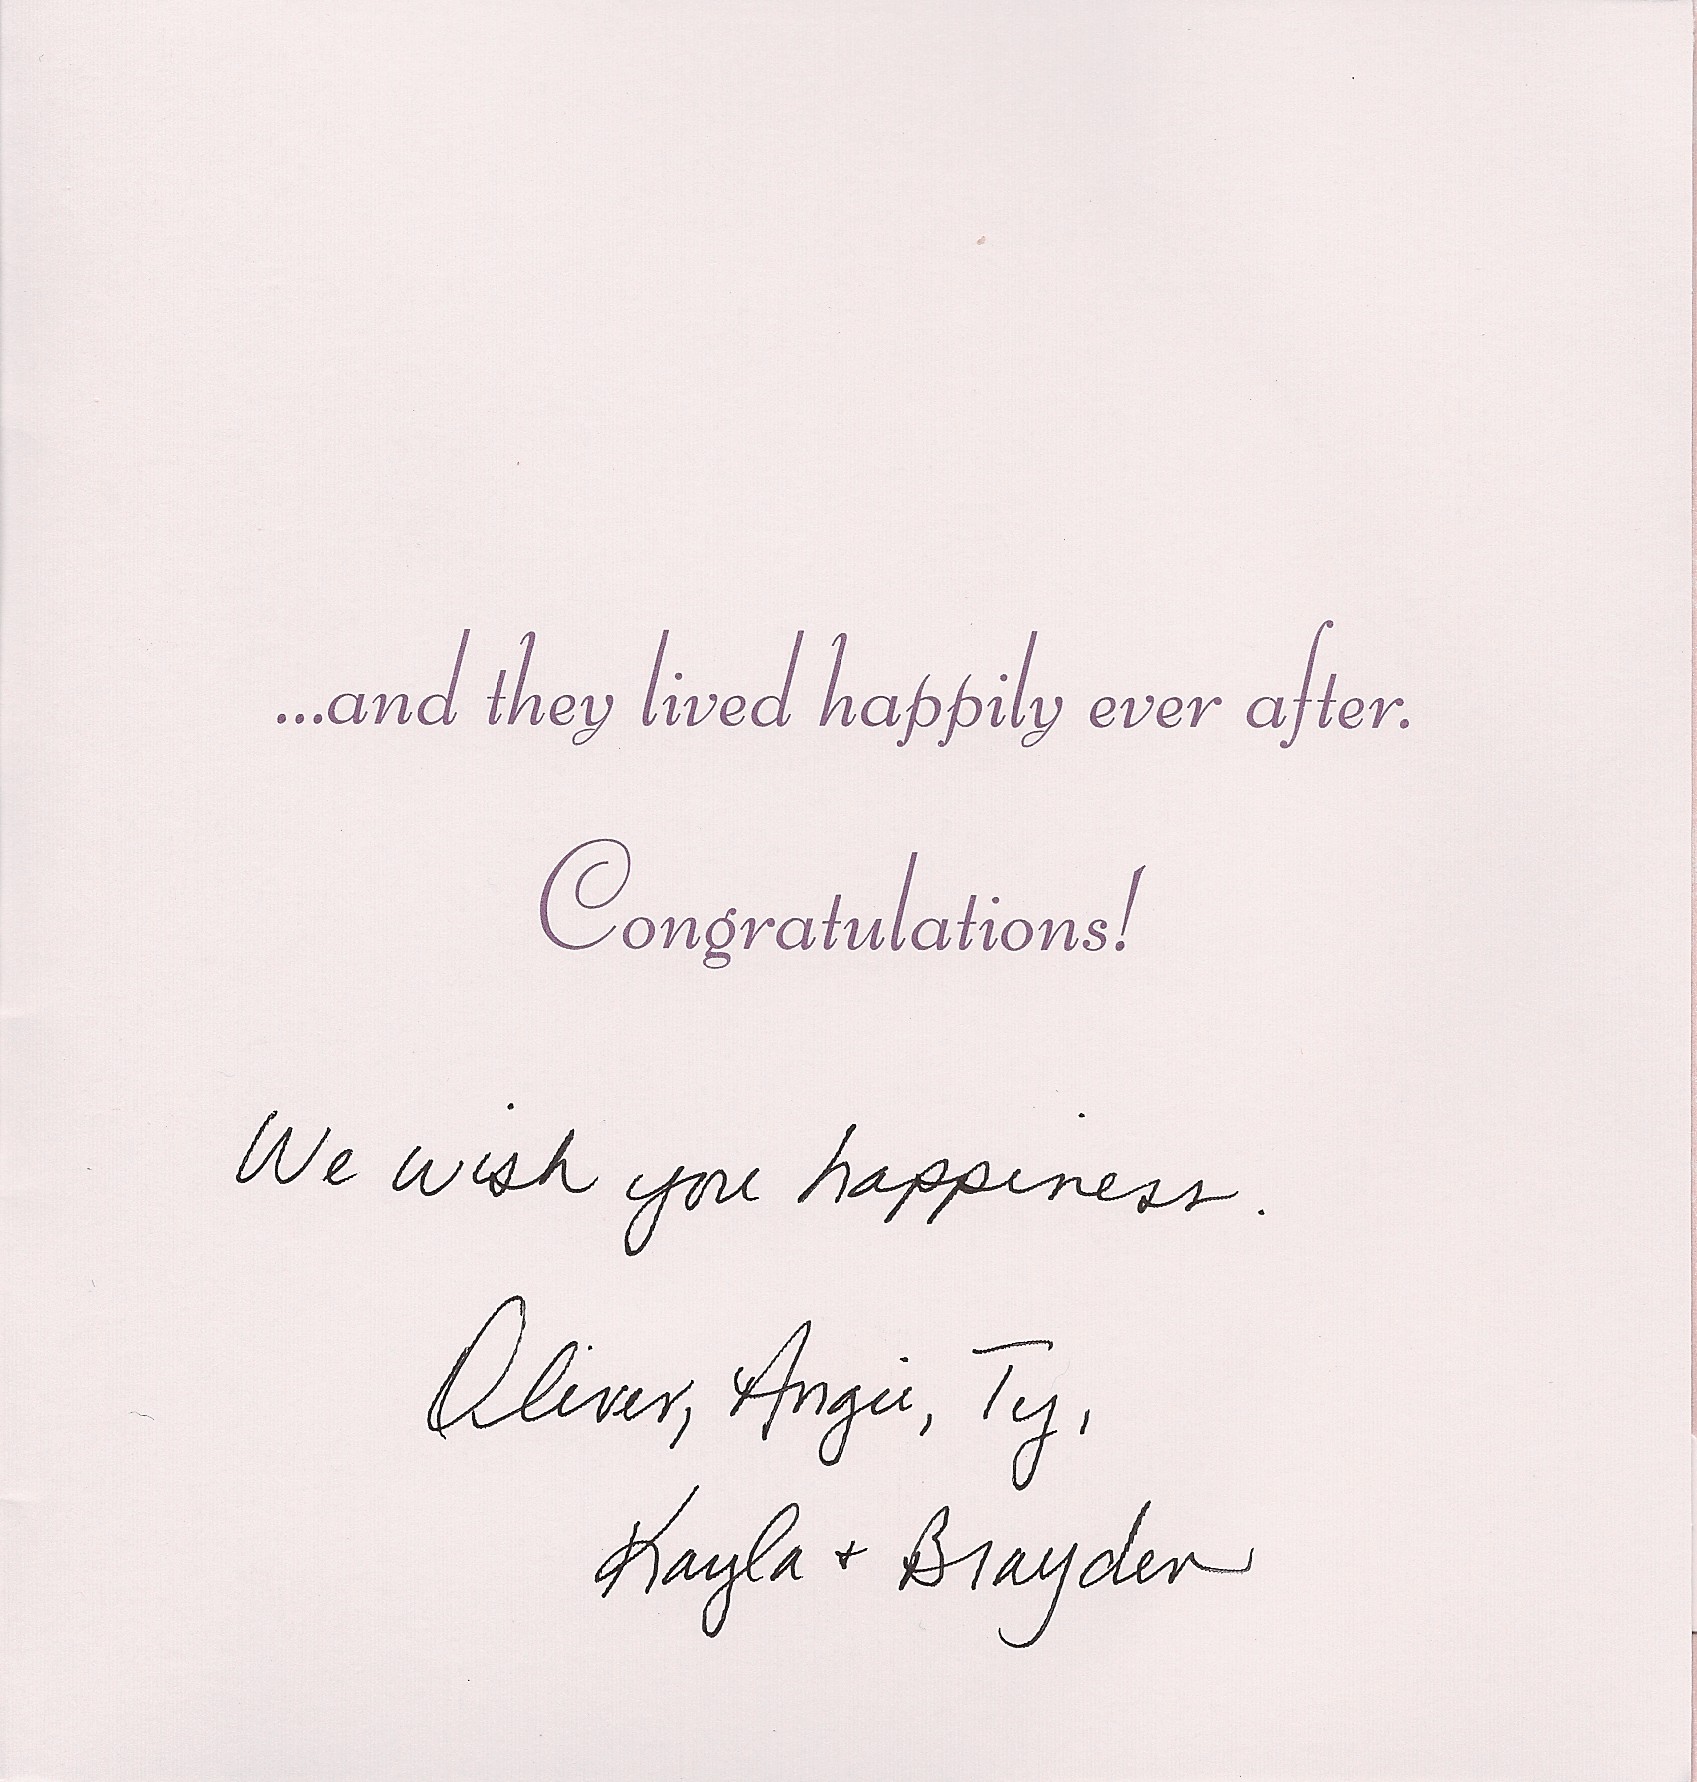 ...and they lived happily ever after.
Congratulations!
We wish you happiness.
Oliver, Angie, Ty,
Kayla + Brayden